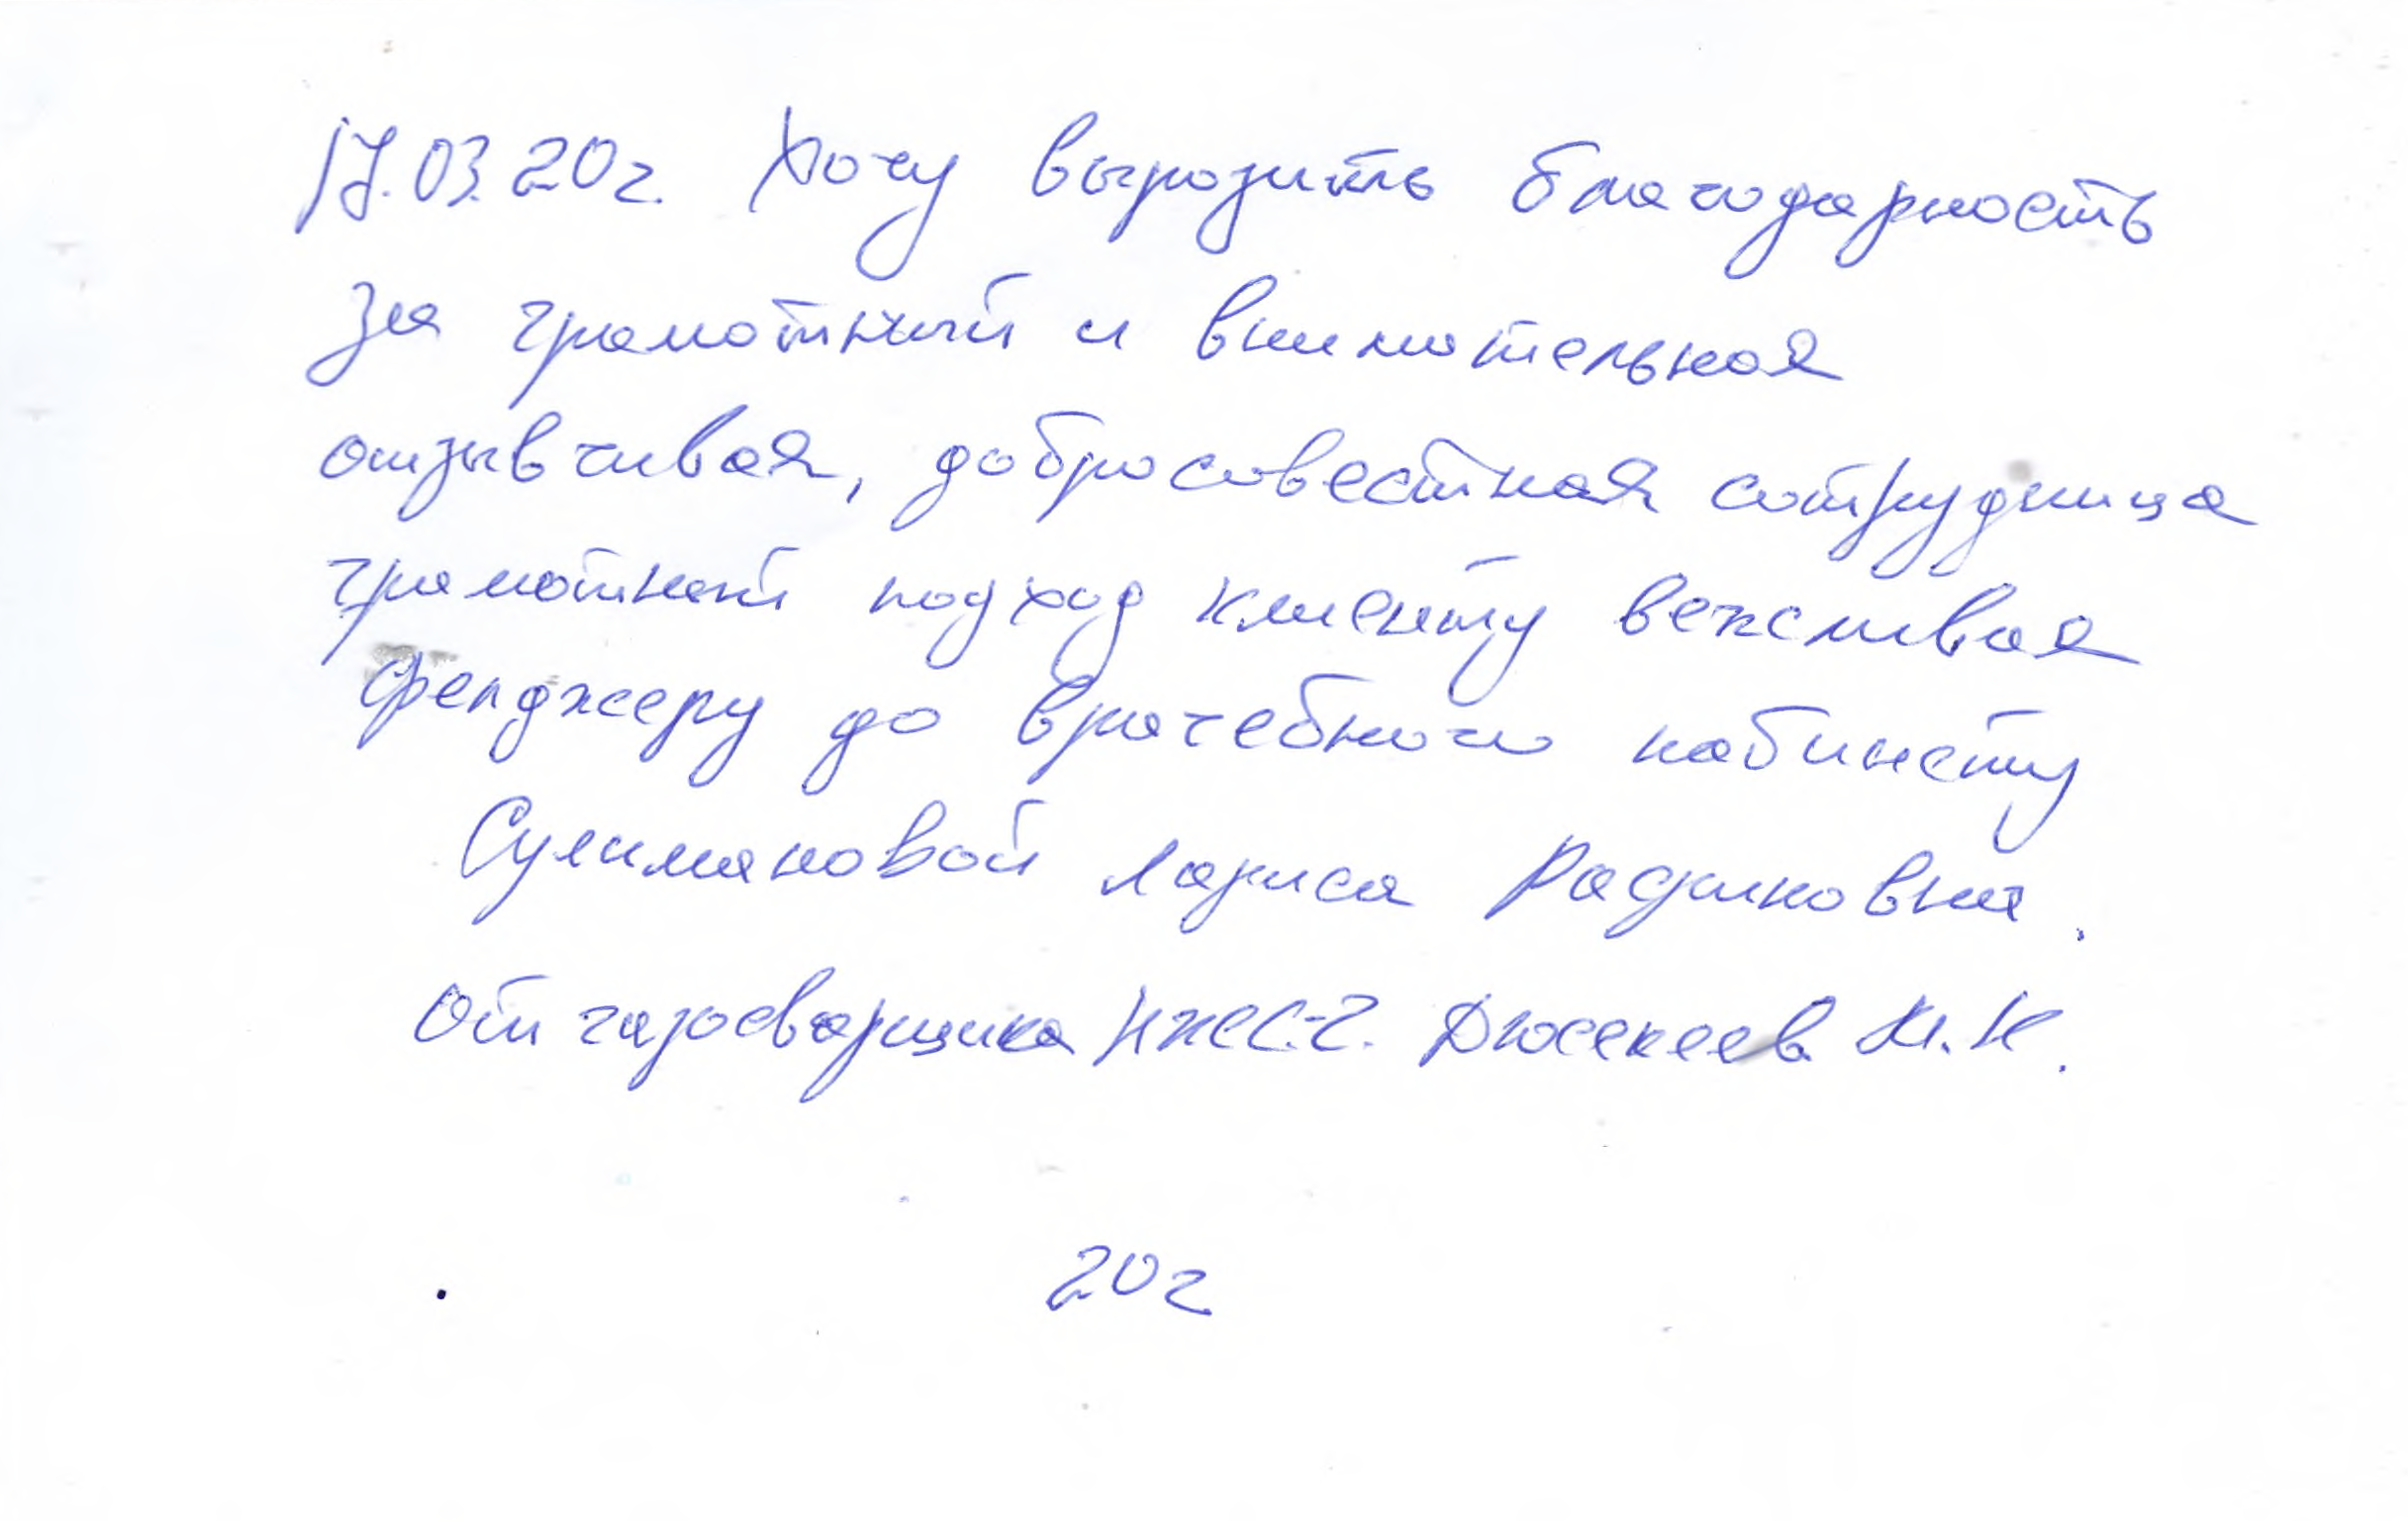 17.03.20г. Хочу выразить благодарность
за грамотный и внимательная
отзывчивая, добросовестная сотрудница
грамотный подход клиенту вежливая
до врачебного кабинету
Сулимановой Лариса Радиковны.
от газосварщика Дюсекеев М.К.
20г